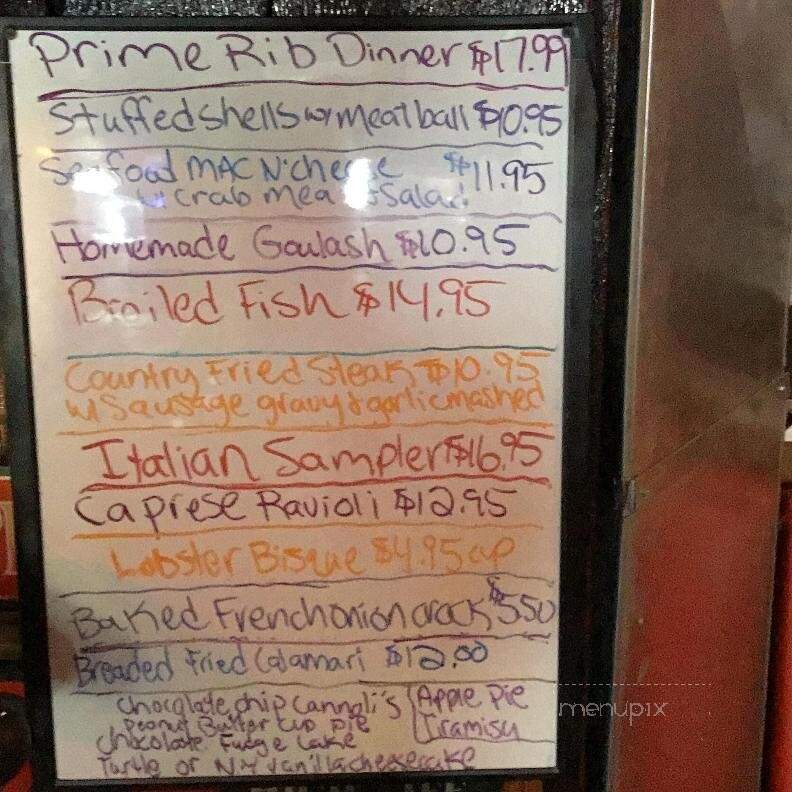 Prime Rib Dinner $17.99
Stuffed shells w/ meatball $10.95
Seafood MAC N' cheese $11.95
w/ Crab Meat & Salad
Homemade Goulash $10.95
Broiled Fish $14.95
Country Fried Steak $10.95
w/ Sausage gravy & garlic mashed
Italian Sampler $16.95
Caprese Ravioli $12.95
Lobster Bisque $4.95 cup
Baked French onion crock $5.50
Breaded Fried Calamari $12.00
Chocolate chip Cannoli's
Peanut Butter Cup Pie
Chocolate Fudge Cake
Turtle or NY Vanilla cheesecake
Apple Pie
Tiramisu
menupix